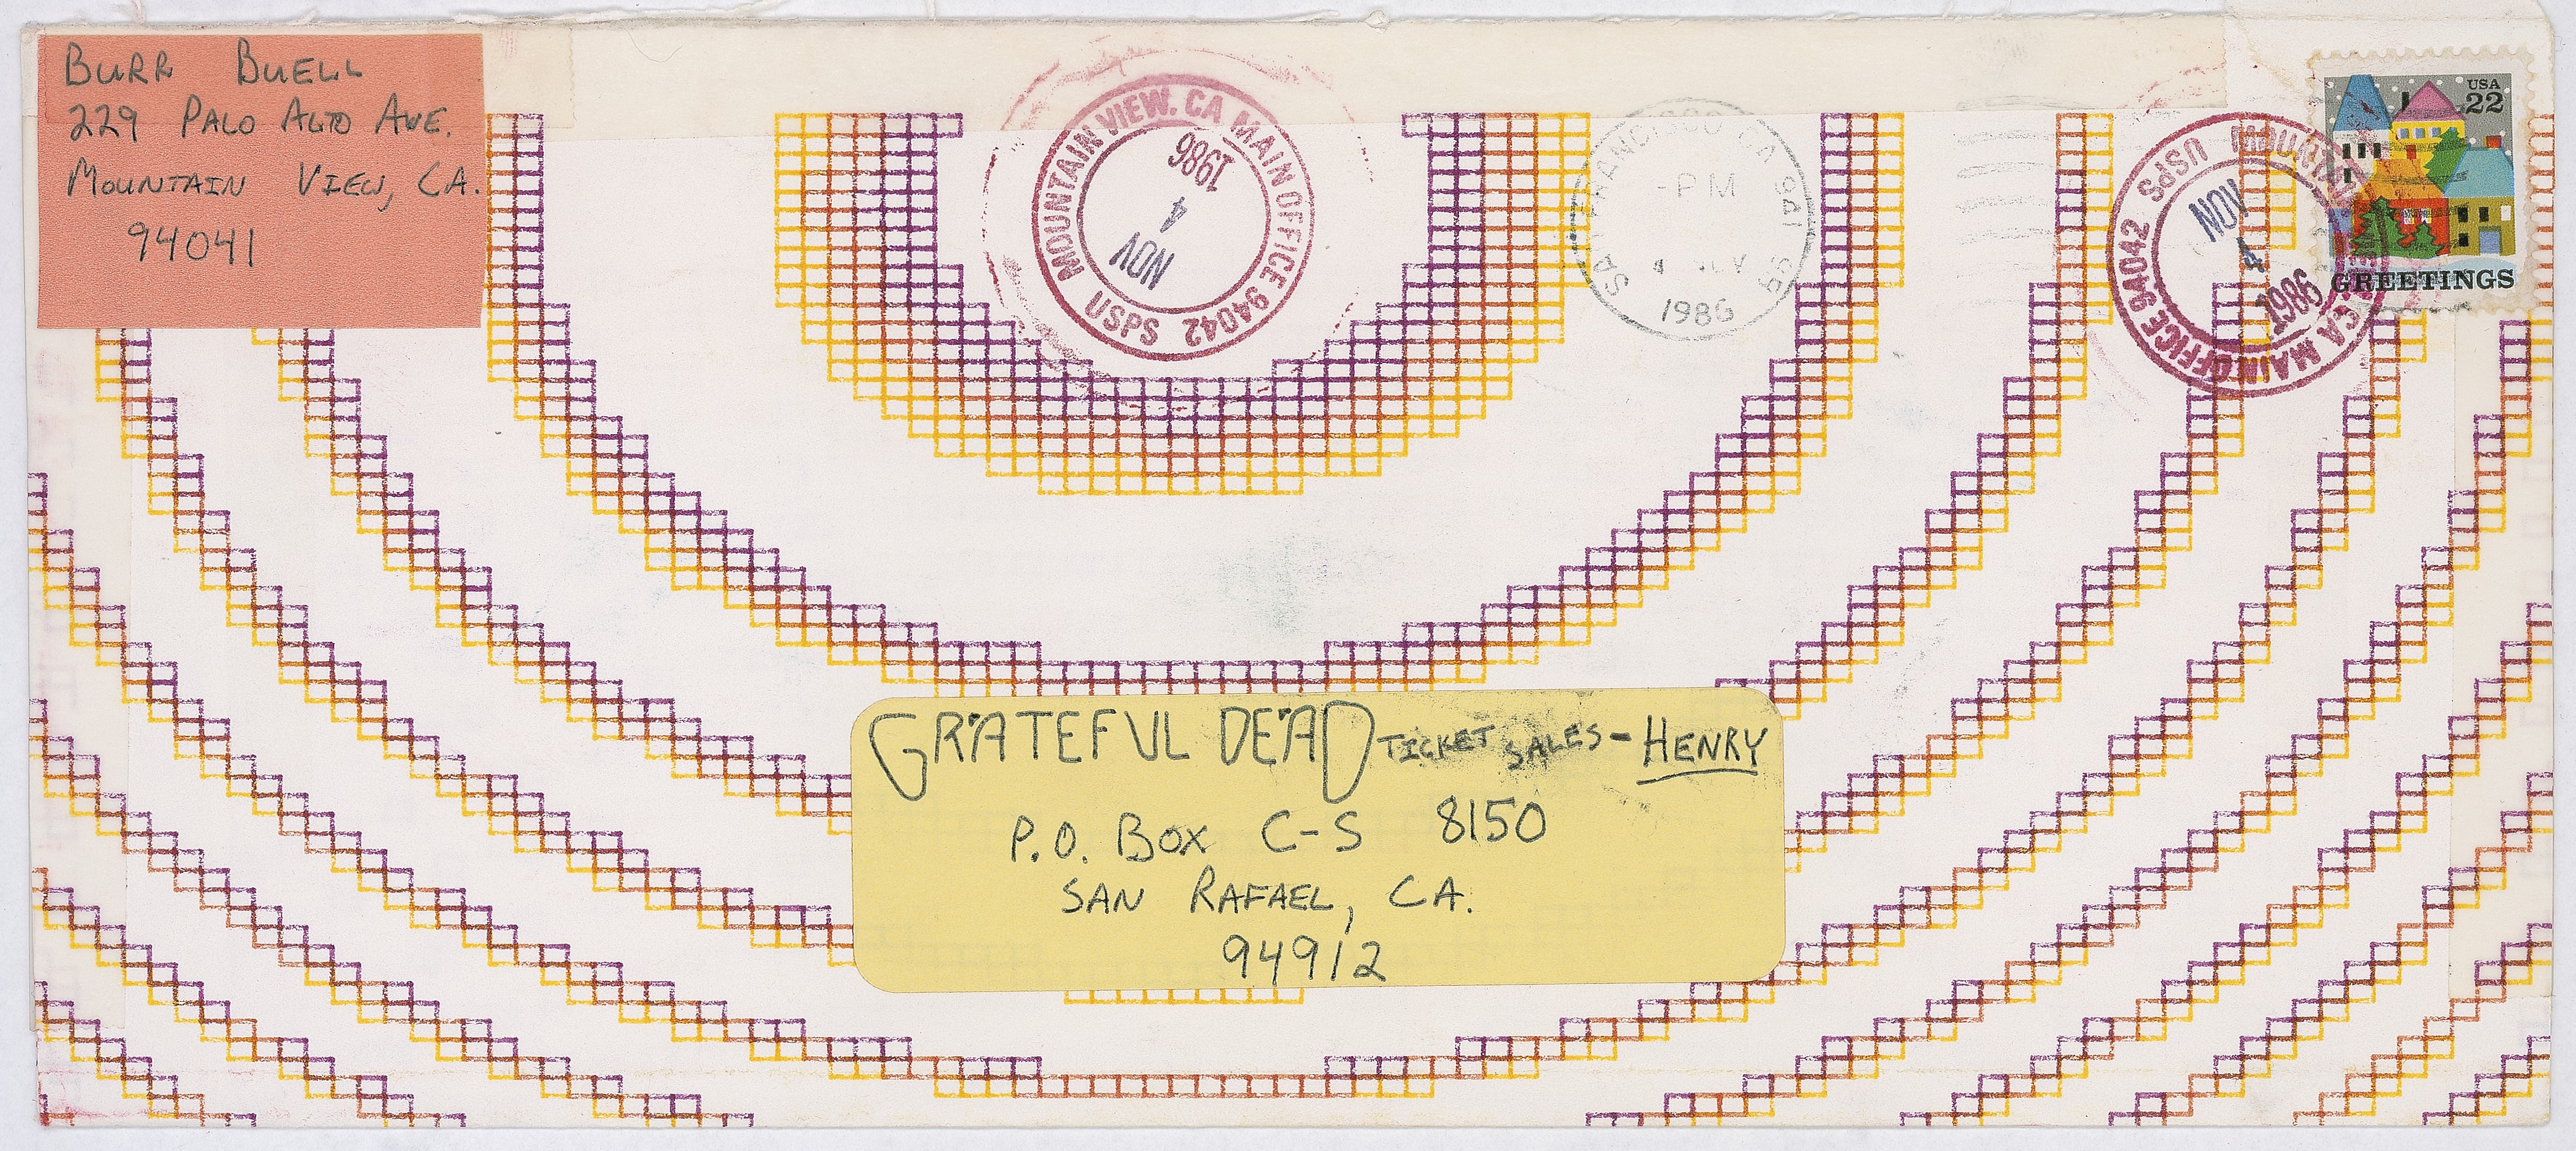 BURR BUELL
229 PALO ALTO AVE.
MOUNTAIN VIEW, CA.
94041
MOUNTAIN VIEW, CA MAIN OFFICE 94042 USPS
NOV
4
1986
SAN FRANCISCO CA 941
PM
1986
MOUNTAIN CA MAIN OFFICE 94042 USPS
NOV
4
1986
USA
22
GREETINGS
GRATEFUL DEAD TICKET SALES - HENRY
P.O. BOX C-S 8150
SAN RAFAEL, CA.
94912